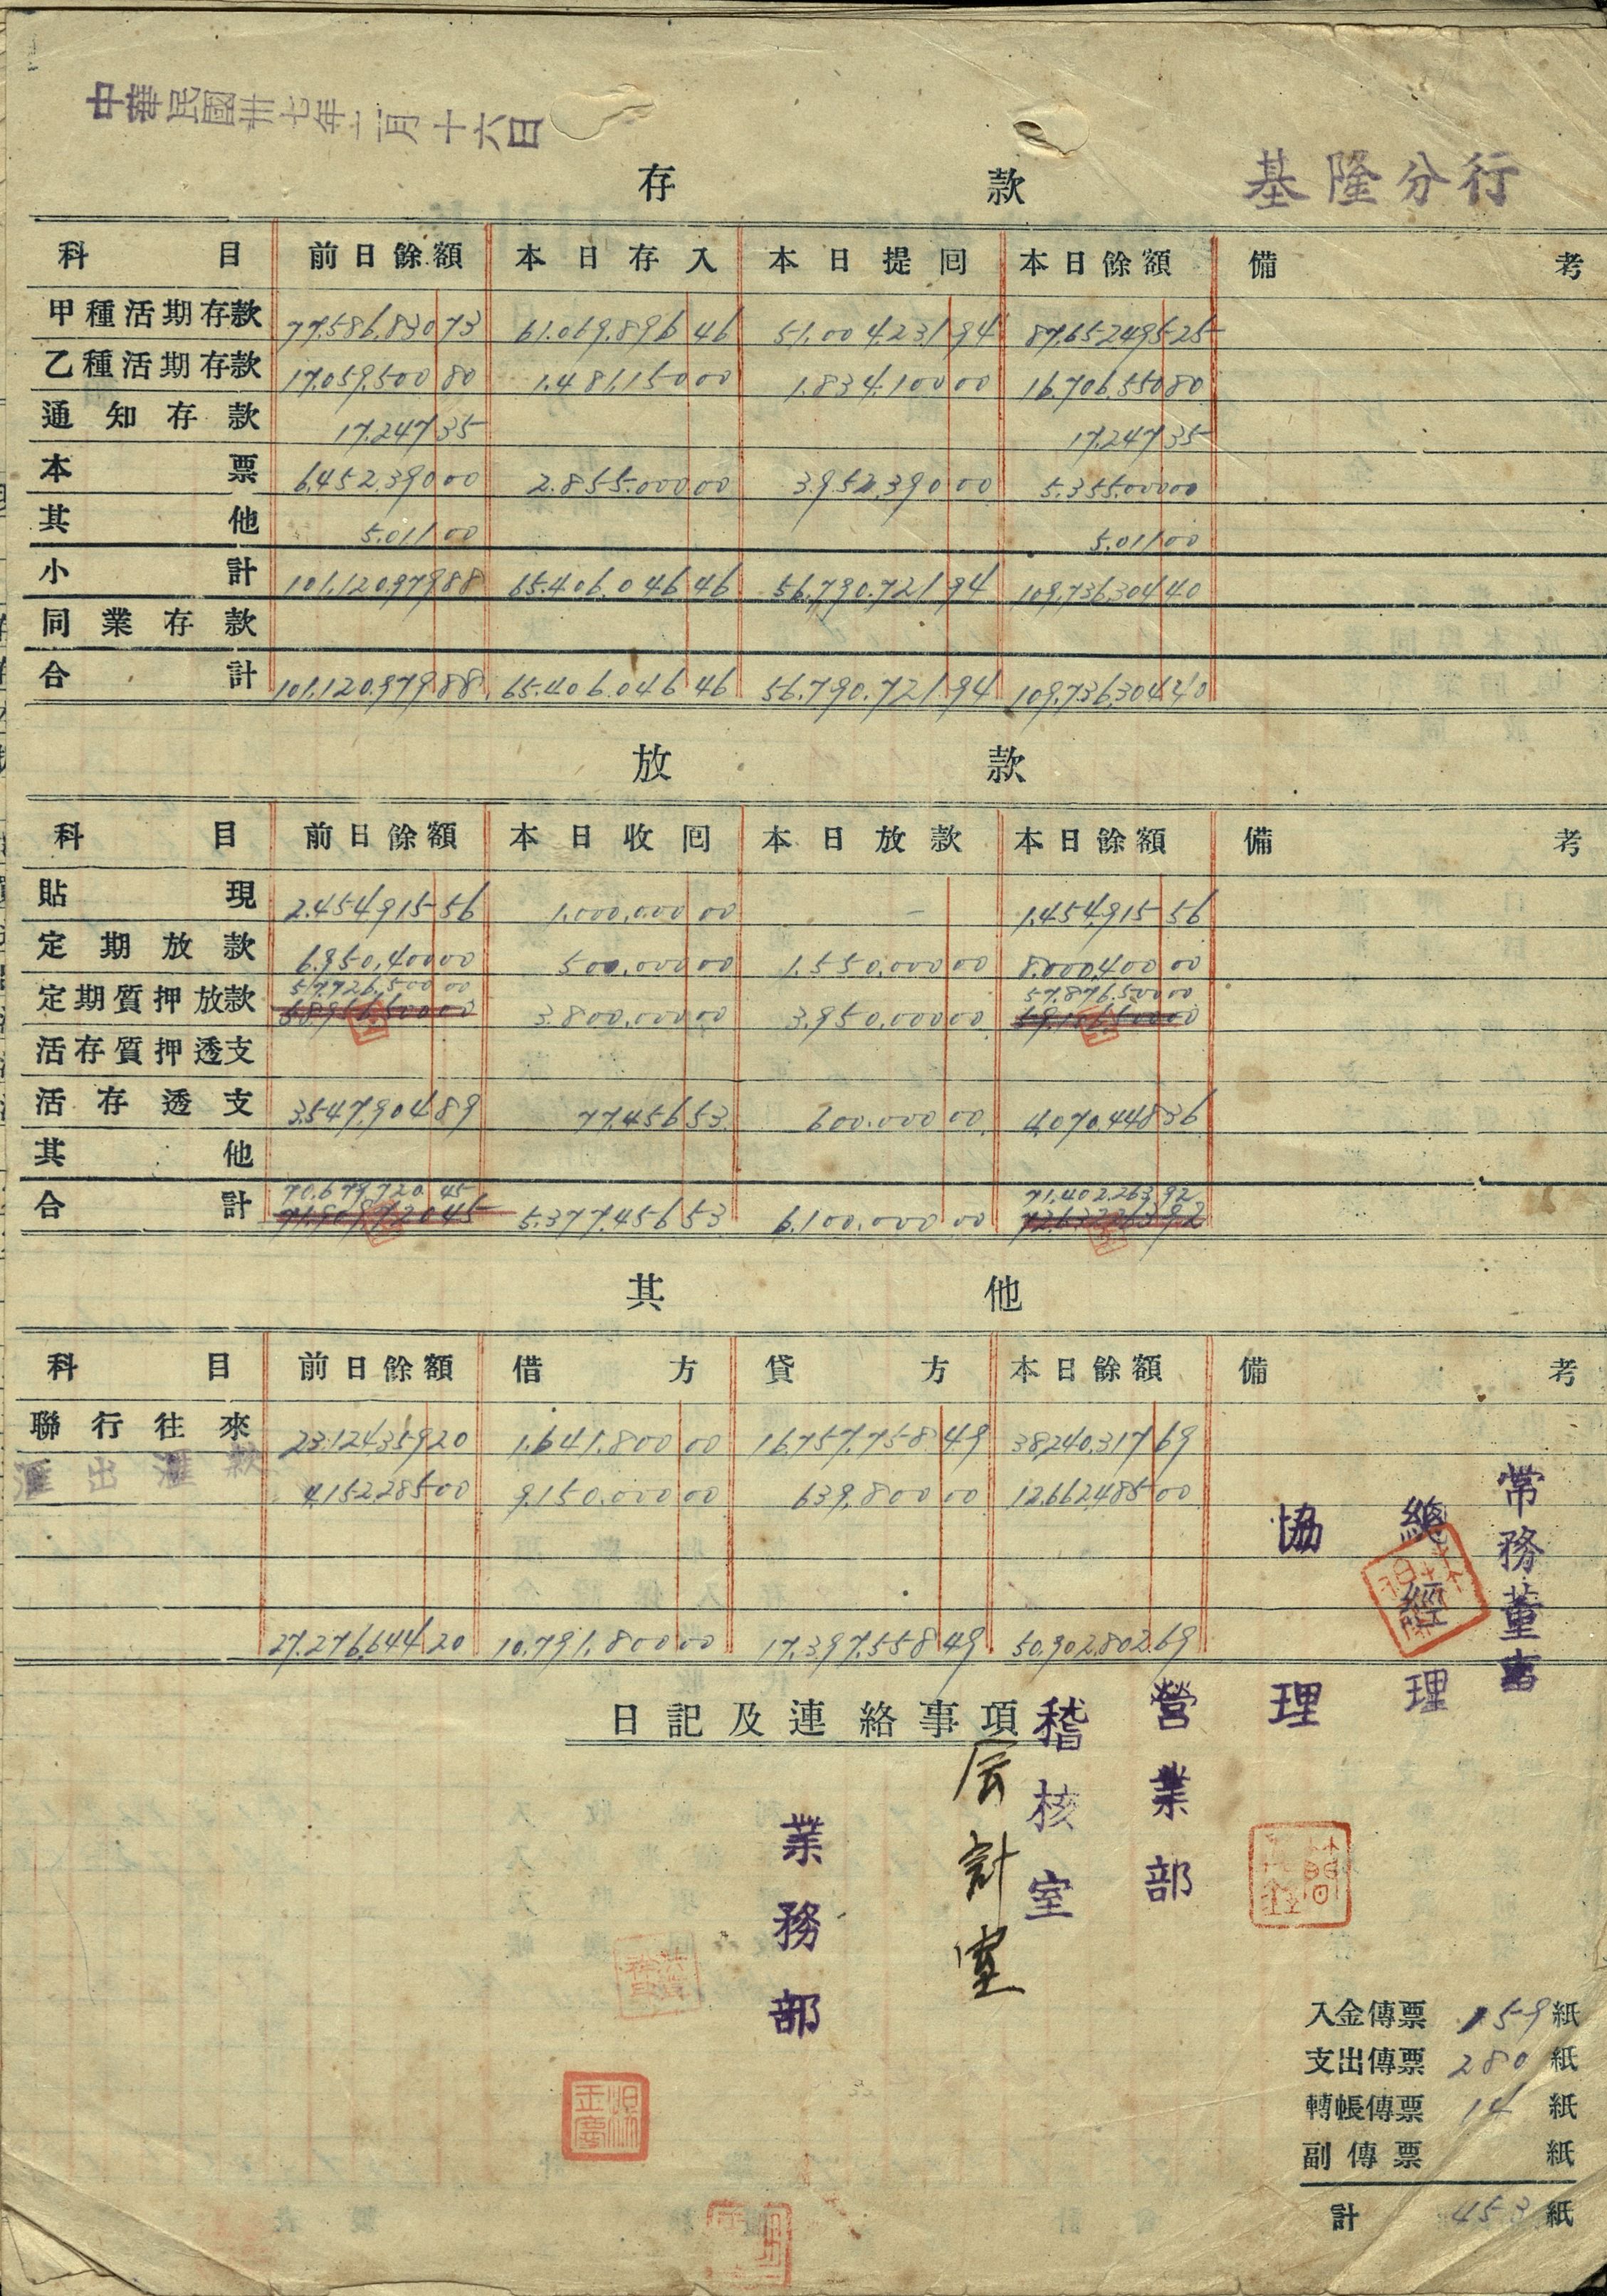 中華民國卅七年二月十六日
基隆分行
存款
科目 前日餘額 本日存入 本日提回 本日餘額 備考
甲種活期存款 77.586.830 73 61.069.896 46 51.004.231 94 87.652.495 25
乙種活期存款 17.059.500 80 1.481.150 00 1.834.100 00 16.706.550 80
通知存款 17.247 35 17.247 35
本票 6.452.390 00 2.855.000 00 3.952.390 00 5.355.000 00
其他 5.011 00 5.011 00
小計 101.120.979 88 65.406.046 46 56.790.721 94 109.736.304 40
同業存款
合計 101.120.979 88 65.406.046 46 56.790.721 94 109.736.304 40
放款
科目 前日餘額 本日收回 本日放款 本日餘額 備考
貼現 2.454.915 56 1.000.000 00 — 1.454.915 56
定期放款 6.950.400 00 500.000 00 1.550.000 00 8.000.400 00
57.726.500 00 57.876.500 00
定期質押放款 3.800.000 00 3.950.000 00
活存質押透支
活存透支 3.547.904 89 77.456 53 600.000 00 4.070.448 36
其他
70.679.720 45 71.402.263 92
合計 5.377.456 53 6.100.000 00
其他
科目 前日餘額 借方 貸方 本日餘額 備考
聯行往來 23.124.359 20 1.641.800 00 16.757.758 49 38.240.317 69
匯出匯款 4.152.285 00 9.150.000 00 639.800 00 12.662.485 00
27.276.644 20 10.791.800 00 17.397.558 49 50.902.802 69
常務董事
總經理
協理
營業部
稽核室
会計室
業務部
日記及連絡事項
入金傳票 159 紙
支出傳票 280 紙
轉帳傳票 14 紙
副傳票 紙
計 453 紙